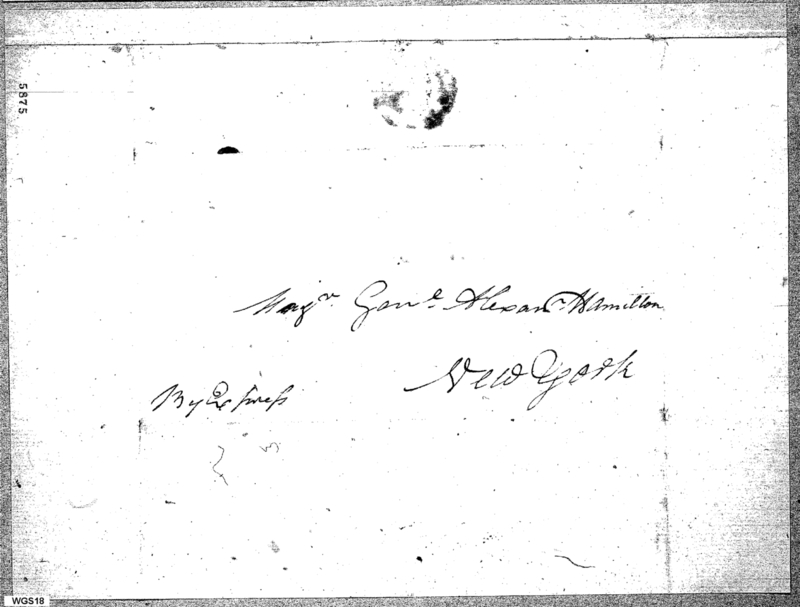 5875
Majr. Genl. Alexanr. Hamilton
New York
By Express
WGS18